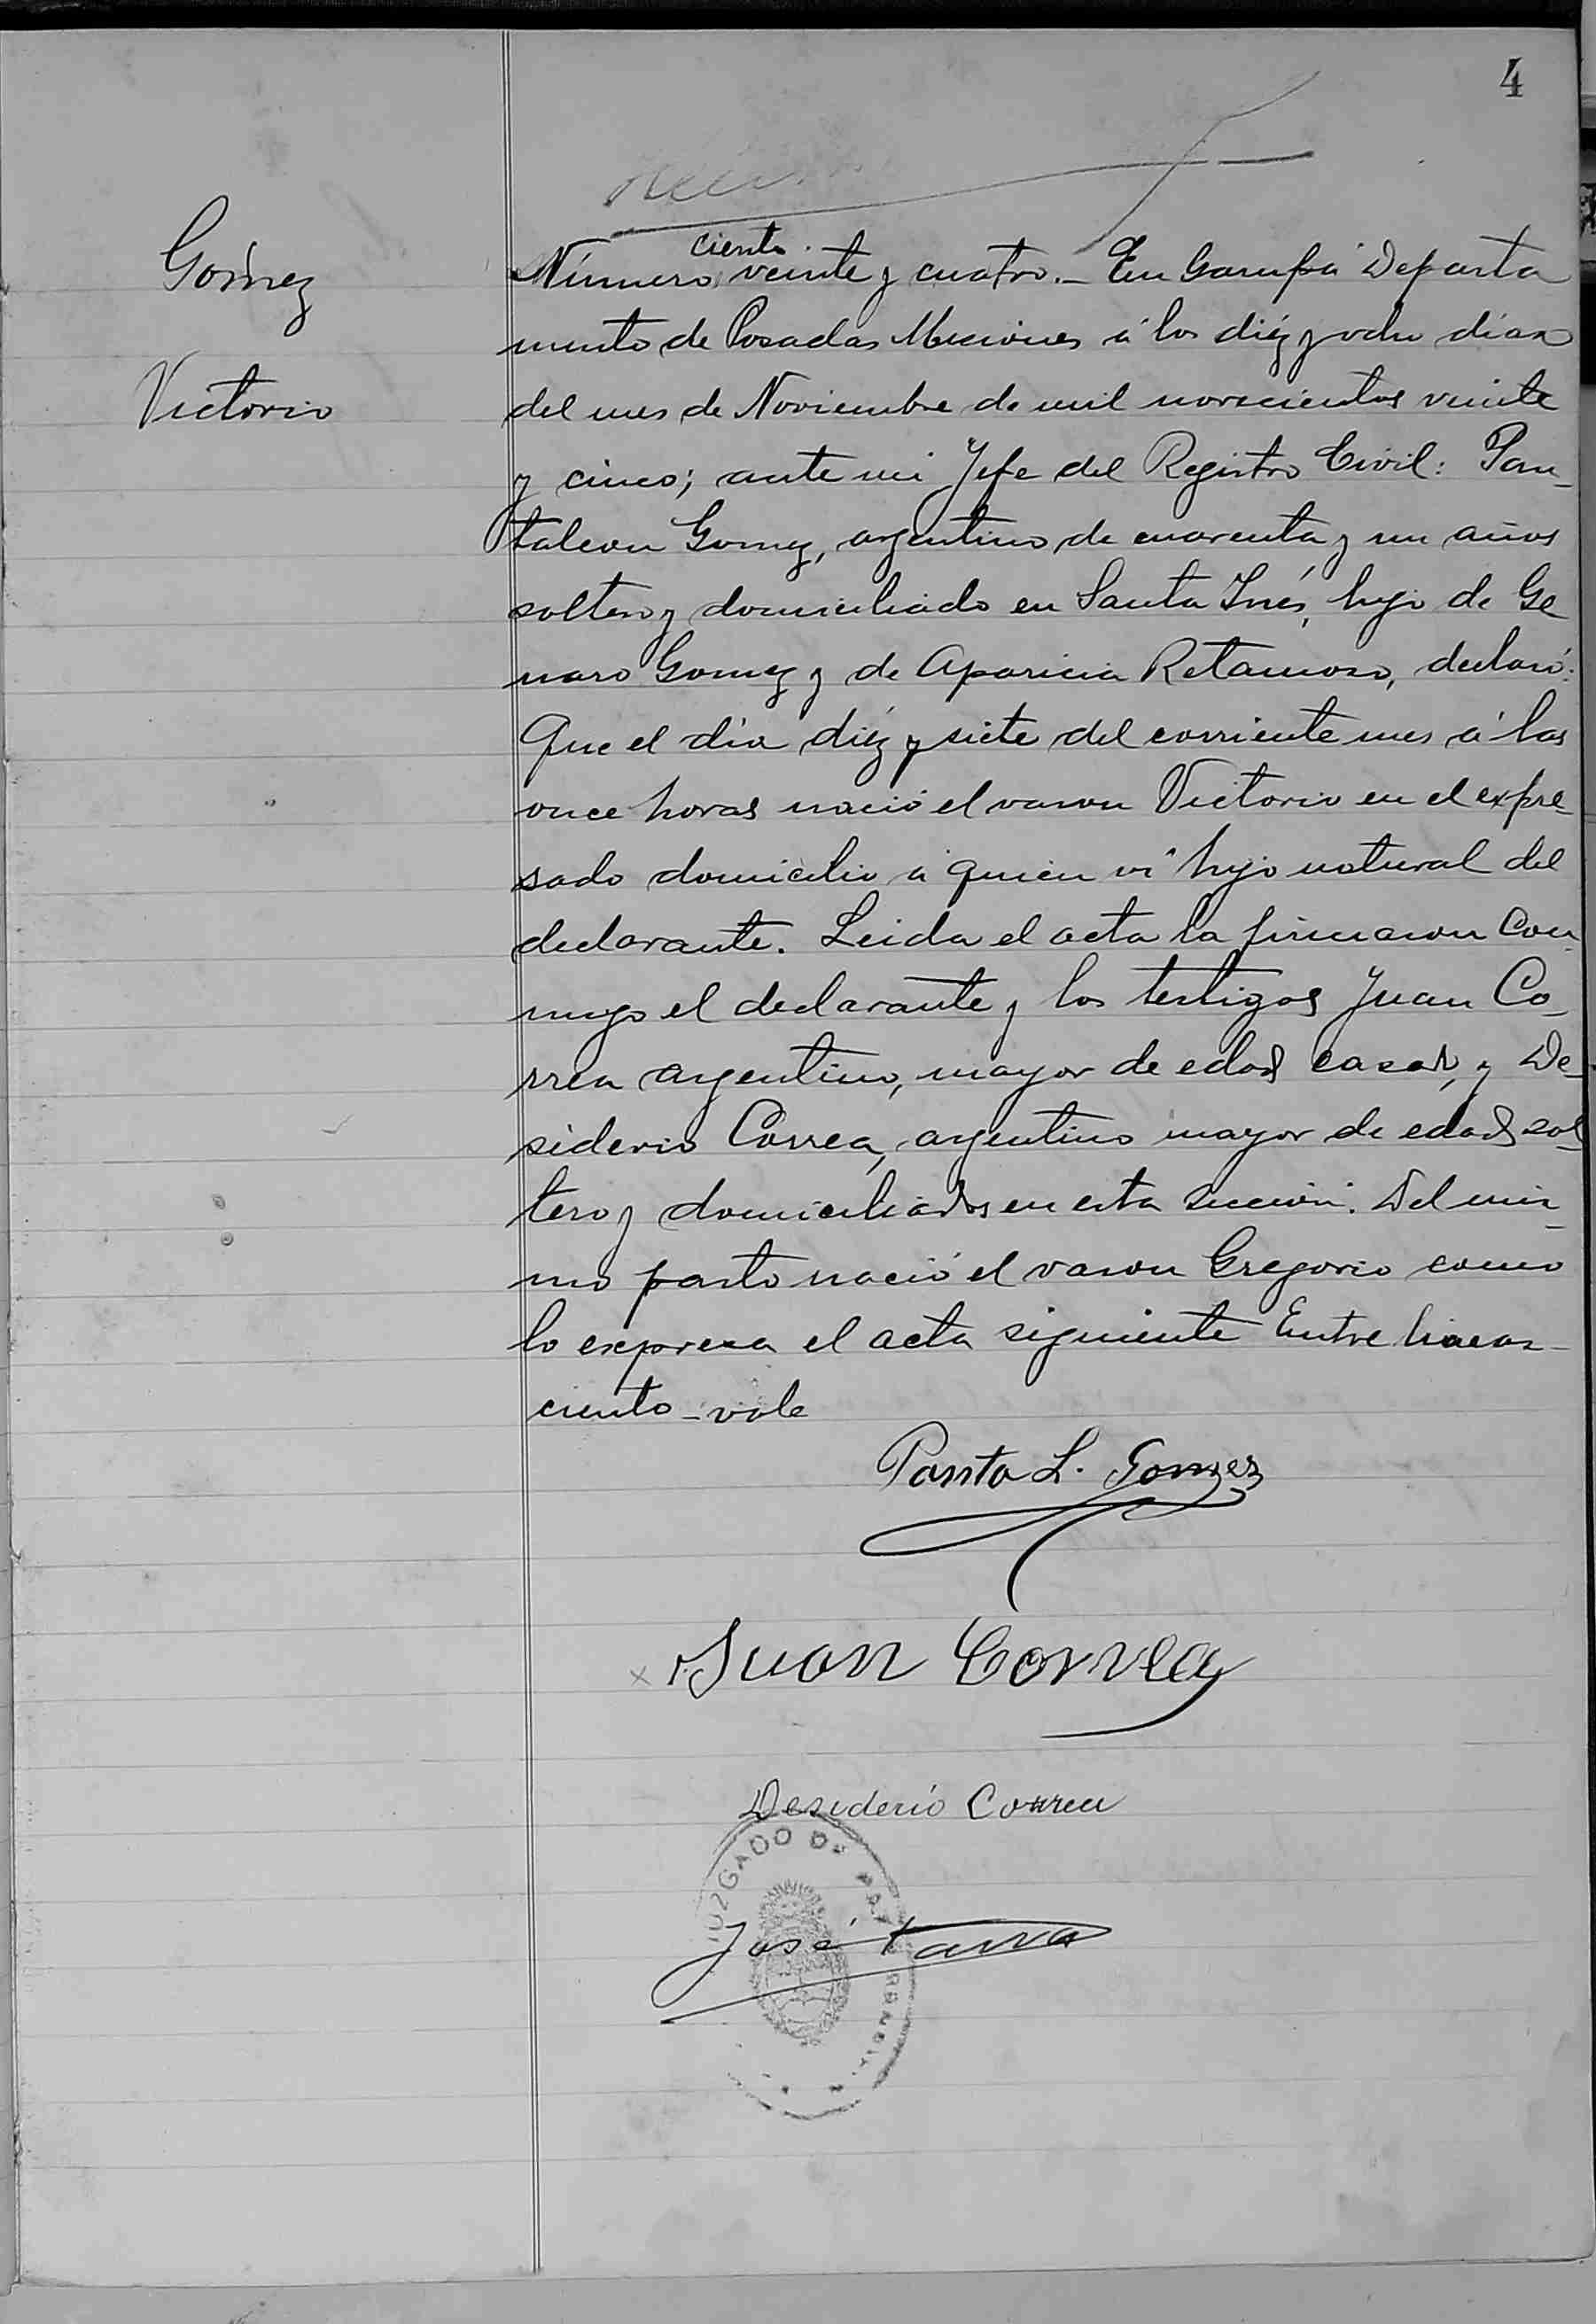 4
Gomez
Victorio
ciento
Número veinte y cuatro.- En Garupá Departa
mento de Posadas Misiones á los diéz y ocho dias
del mes de Noviembre de mil novecientos veinte
y cinco; ante mi Jefe del Registro Civil: Pan-
taleon Gomez, argentino de cuarenta y un años
soltero y domiciliado en Santa Inés, hijo de Ge
naro Gomez y de Aparicia Retamoso, declaró:
Que el dia diéz y siete del corriente mes á las
once horas nació el varon Victorio en el expre-
sado domicilio á quien vi hijo natural del
declarante. Leida el acta la firmaron con-
migo el declarante y los testigos Juan Co-
rrea argentino, mayor de edad casado, y De-
siderio Correa, argentino mayor de edad sol
tero y domiciliados en esta sección. Del mis-
mo parto nació el varon Gregorio como
lo expresa el acta siguiente Entre lineas-
ciento-vale
Panta L. Gomez
Juan Correa
Desiderio Correa
JUZGADO DE PAZ
José